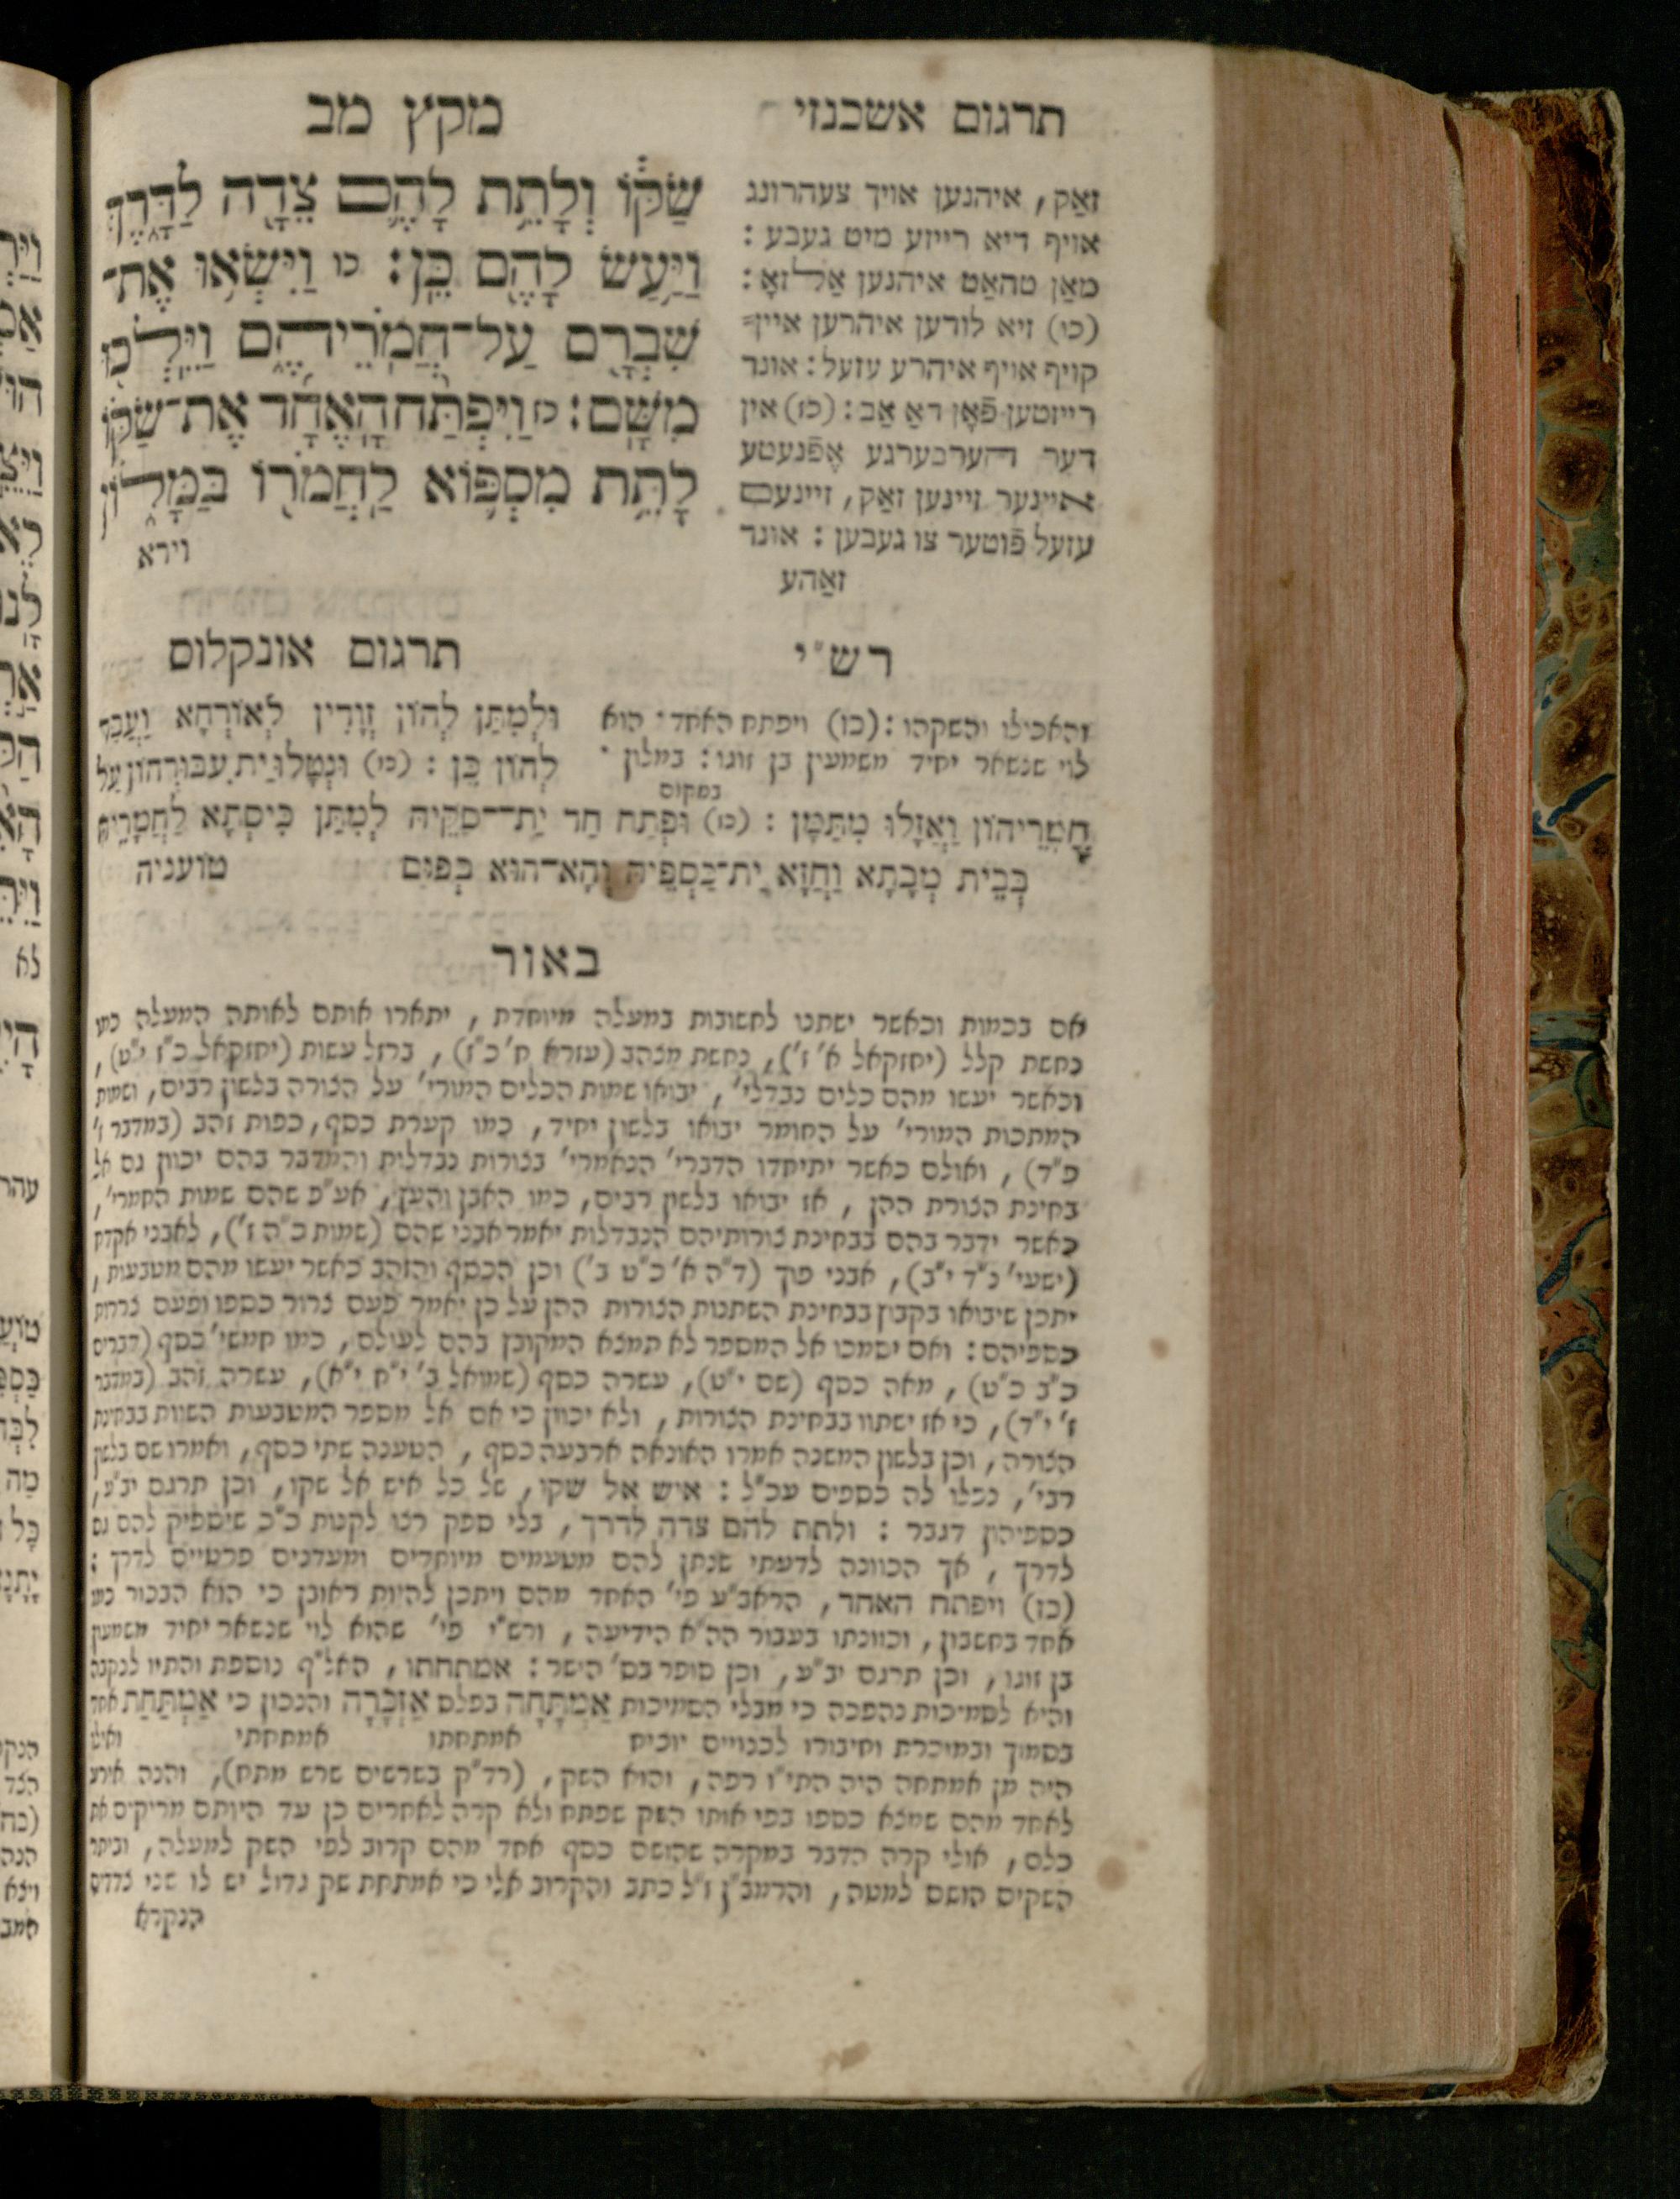 מקץ מב
שַׂקּ֔וֹ וְלָתֵ֥ת לָהֶ֛ם צֵדָ֖ה לַדָּ֑רֶךְ
וַיַּ֥עַשׂ לָהֶ֖ם כֵּֽן׃ כו וַיִּשְׂא֥וּ אֶת־
שִׁבְרָ֖ם עַל־חֲמֹרֵיהֶ֑ם וַיֵּלְכ֖וּ
מִשָּֽׁם׃ כז וַיִּפְתַּ֨ח הָאֶחָ֜ד אֶת־שַׂקּ֗וֹ
לָתֵ֥ת מִסְפּ֛וֹא לַחֲמֹר֖וֹ בַּמָּל֑וֹן
וירא
תרגום אשכנזי
זאַק, איהנען אויך צעהרונג
אויף דיא רייזע מיט געבע :
מאַן טהאַט איהנען אַלזאָ :
(כו) זיא לודען איהרען איין־
קויף אויף איהרע עזעל : אונד
רייזטען פֿאָן דאַ אַב : (כז) אין
דער הערבערגע אֶפֿנעטע
איינער זיינען זאַק, זיינעם
עזעל פֿוטער צו געבען : אונד
זאַהע
תרגום אונקלוס
וּלְמִתַּן לְהוֹן זְוָדִין לְאוֹרְחָא וַעֲבַד
לְהוֹן כֵּן : (כו) וּנְטָלוּ יַת עִבּוּרְהוֹן עַל
חֲמָרֵיהוֹן וַאֲזָלוּ מִתַּמָּן : (כז) וּפְתַח חַד יַת־סַקֵּיהּ לְמִתַּן כִּיסְתָא לַחֲמָרֵיהּ
בְּבֵית מְבָתָא וַחֲזָא יַת־כַּסְפֵּיהּ וְהָא־הוּא בְּפוּם
טועניה
רש"י
והאכילו והשקהו : (כז) ויפתח האחד · הוא
לוי שנשאר יחיד משמעון בן זוגו : במלון ·
במקום
באור
אם בכמות וכאשר ישתנו לחשובות במעלה מיוחדת, יתארו אותם לאותה המעלה כמו
נחשת קלל (יחזקאל א' ז'), נחשת מצהב (עזרא ח' כ"ז), ברזל עשות (יחזקאל כ"ז י"ט),
וכאשר יעשו מהם כלים נבדלי', יבואו שמות הכלים המורי' על הצורה בלשון רבים, ושמות
המתכות המורי' על החומר יבואו בלשון יחיד, כמו קערת כסף, כפות זהב (במדבר ז'
פ"ד), ואולם כאשר יתיחדו הדברי' הנאמרי' בצורות נבדלות והמדבר בהם יכוון גם אל
בחינת הצורת ההן, אז יבואו בלשון רבים, כמו האבן והעץ, אע"פ שהם שמות החמרי',
כאשר ידבר בהם בבחינת צורותיהם הנבדלות יאמר אבני שהם (שמות כ"ה ז'), לאבני אקדח
(ישעי' נ"ד י"ב), אבני פוך (ד"ה א' כ"ט ב') וכן הכסף והזהב כאשר יעשו מהם מטבעות,
יתכן שיבואו בקבוץ בבחינת השתנות הצורות ההן על כן יאמר פעם צרור כספו ופעם צררות
כספיהם : ואם יסמכו אל המספר לא תמצא המקובץ בהם לעולם, כמו חמשי' כסף (דברים
כ"ב כ"ט), מאה כסף (שם י"ט), עשרה כסף (שמואל ב' י"ח י"א), עשרה זהב (במדבר
ז' י"ד), כי אז ישתוו בבחינת הצורות, ולא יכוון כי אם אל מספר המטבעות השוות בבחינת
הצורה, וכן בלשון המשנה אמרו האונאה ארבעה כסף, הטענה שתי כסף, ואמרו שם בלשון
רבי', נכלו לה כספים עכ"ל : איש אל שקו, של כל איש אל שקו, וכן תרגם יב"ע,
כספיהון דגבר : ולתת להם צדה לדרך, בלי ספק רצו לקנות כ"כ שיספיק להם גם
לדרך, אך הכוונה לדעתי שנתן להם מטעמים מיוחדים ומעדנים פרטיים לדרך :
(כז) ויפתח האחד, הראב"ע פי' האחד מהם ויתכן להיות ראובן כי הוא הבכור כמו
אחד בחשבון, וכוונתו בעבור הה"א הידיעה, ורש"י פי' שהוא לוי שנשאר יחיד משמעון
בן זוגו, וכן תרגם יב"ע, וכן סופר בס' הישר : אמתחתו, האל"ף נוספת והתיו לנקבה
והיא לסמיכות נהפכה כי מבלי הסמיכות אַמְתָּחָה בפלס אַזְכָּרָה והנכון כי אַמְתַּחַת אחד
בסמוך ובמוכרת וחיבורו לכנויים יוכיח אמתחתו אמתחתי ואילו
היה מן אמתחה היה התי"ו רפה, והוא השק, (רד"ק בשרשים שרש מתח), והנה אירע
לאחד מהם שמצא כספו בפי אותו השק שפתח ולא קרה לאחרים כן עד היותם מריקים את
כלם, אולי קרה הדבר במקרה שהושם כסף אחד מהם קרוב לפי השק למעלה, וביתר
השקים הושם למטה, והרמב"ן ז"ל כתב והקרוב אלי כי אמתחת שק גדול יש לו שני צדדים
הנקרא